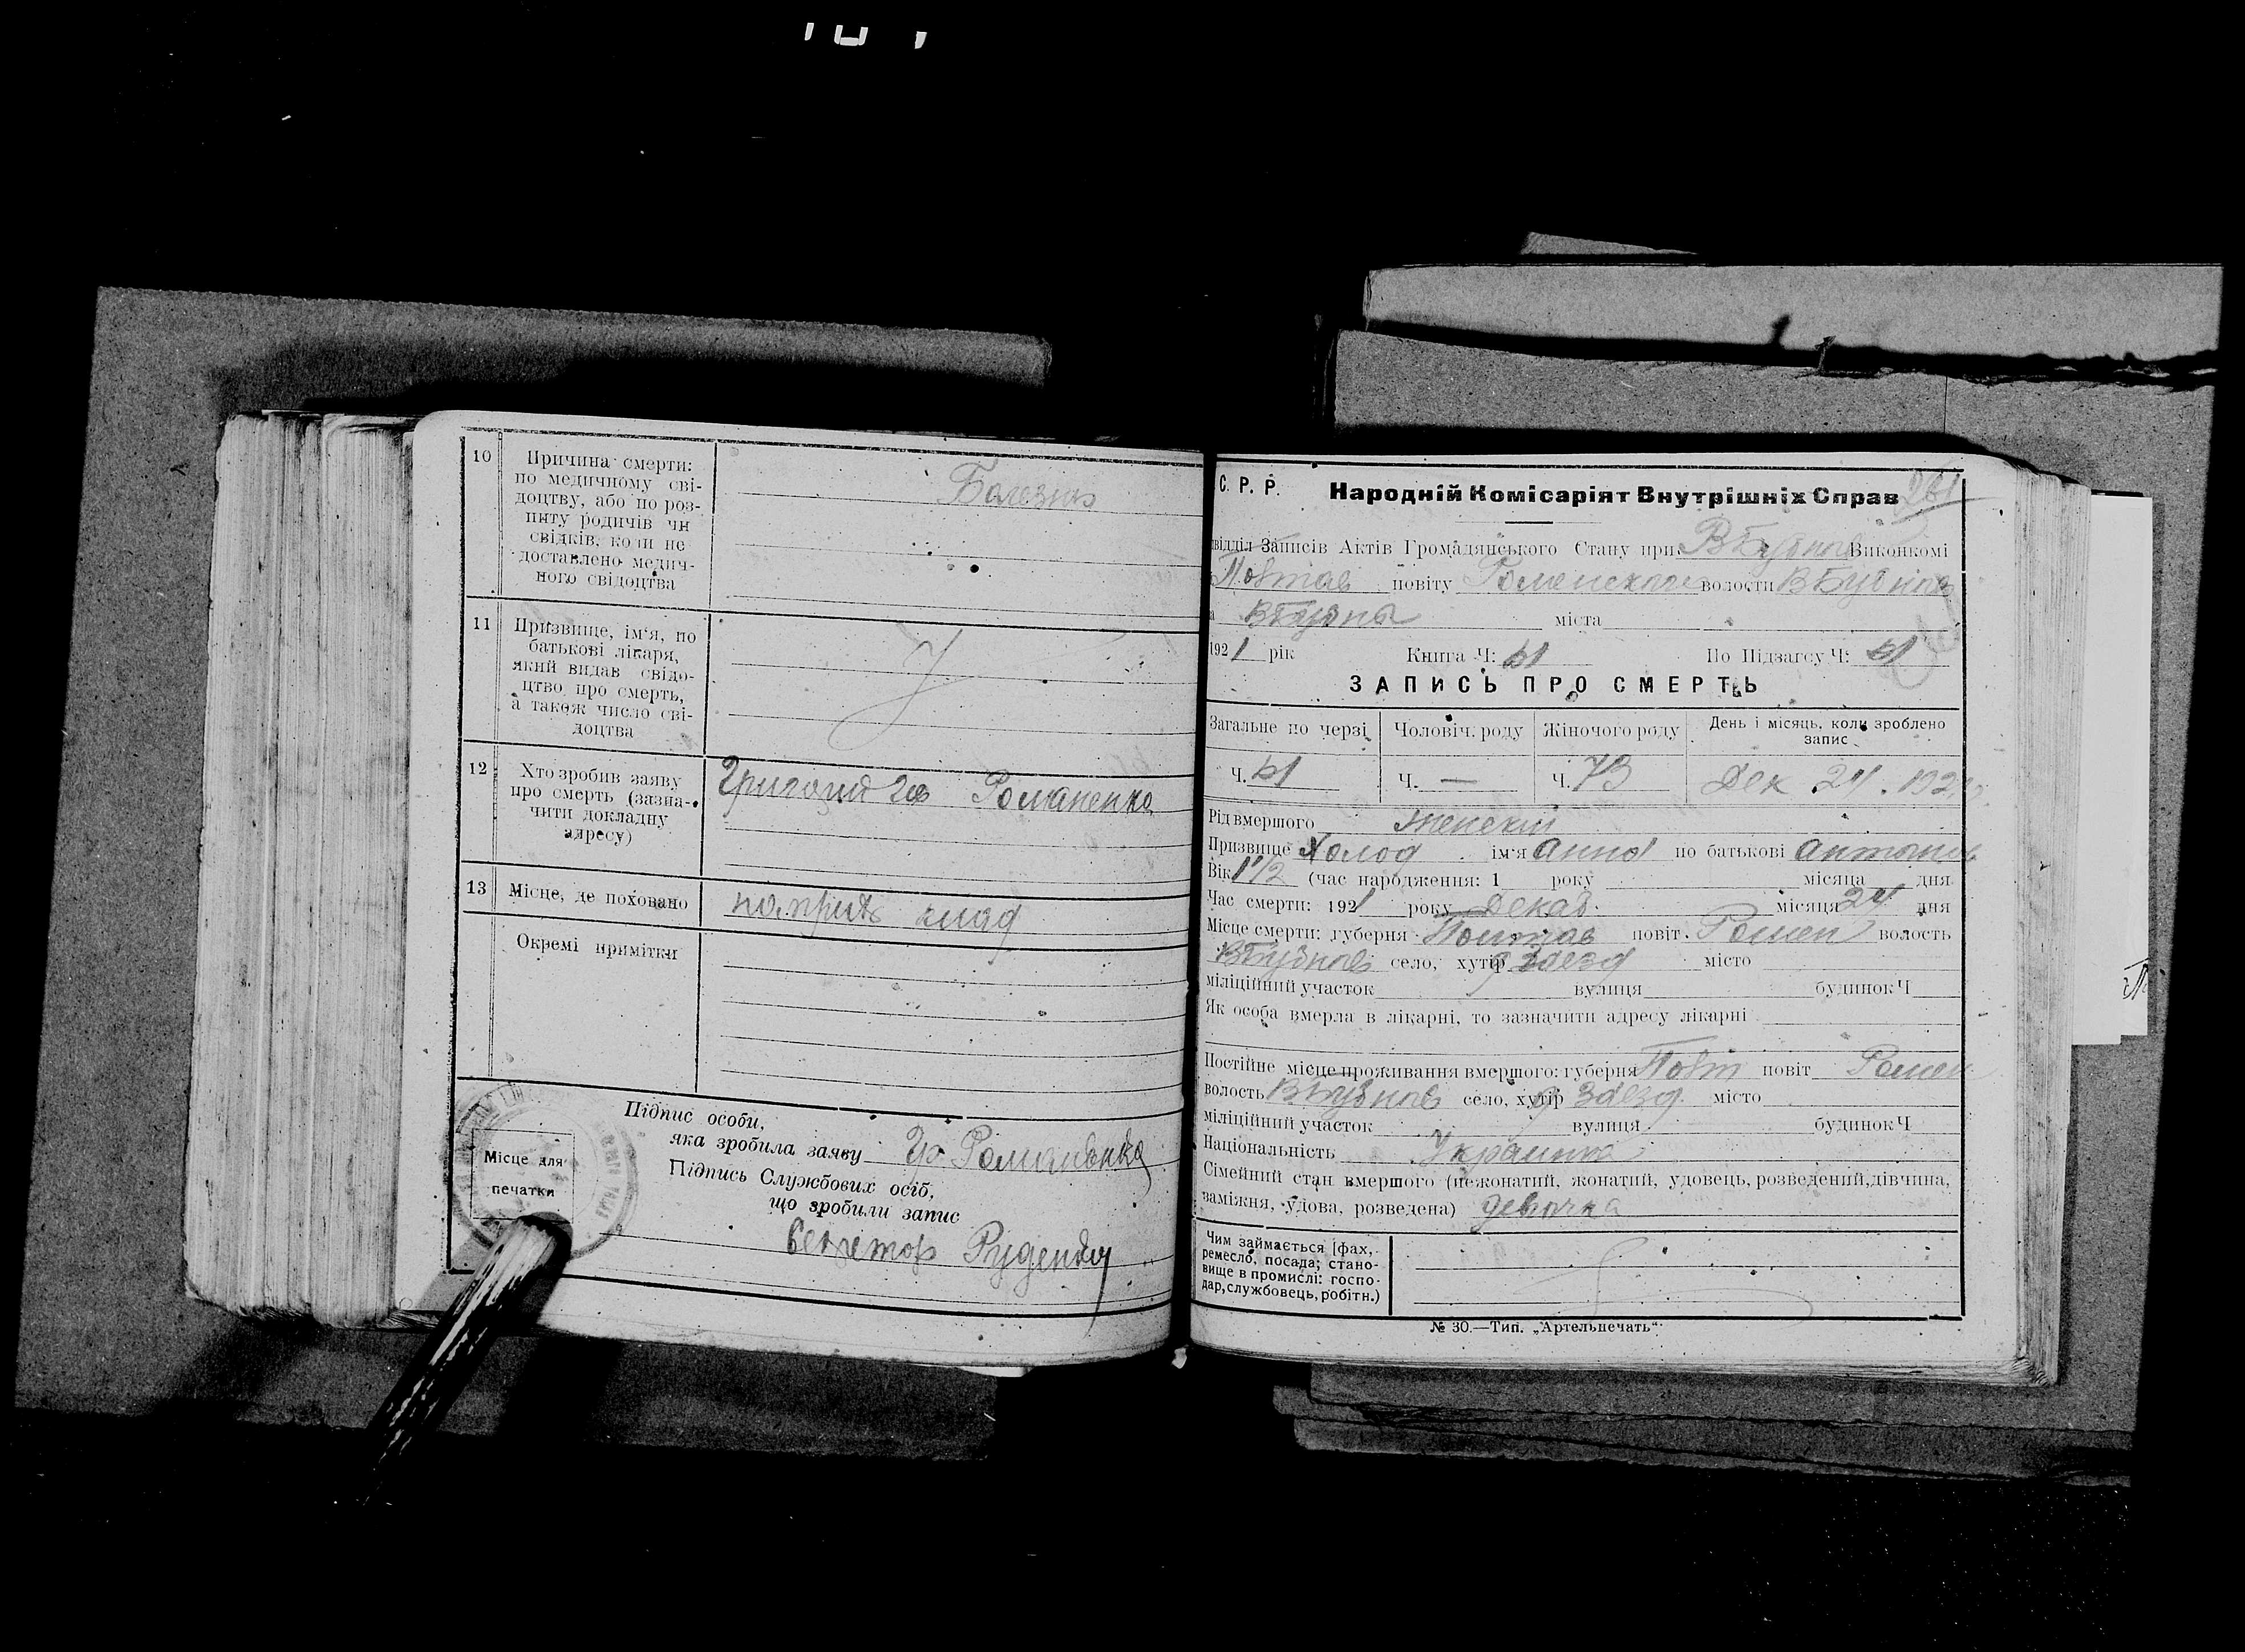 10 Причина смерти:
по медичному сві-
доцтву, або по роз-
питу родичів чи
свідків, коли не
доставлено медич-
ного свідоцтва
Болезнь
11 Призвище, ім'я, по
батькові лікаря,
який видав свідо-
цтво про смерть,
а також число сві-
доцтва
12 Хто зробив заяву
про смерть (зазна-
чити докладну
адресу)
Романенко
13 Місце, де поховано
клад
Окремі примітки
Місце для
печатки
Підпис особи,
яка зробила заяву Гр. Романенко
Підпись Службових осіб,
що зробили запис
Секретор Руденко
261
С. Р. Р. Народній Комісаріят Внутрішніх Справ
відділ Записів Актів Громадянського Стану при ВБубнов Виконкомі
Повтав повіту Роменского волости ВБубнов
ВБубны міста
1921 рік Книга Ч: 61 По Підзагсу Ч: 61
ЗАПИСЬ ПРО СМЕРТЬ
Загальне по черзі Чоловіч. роду Жіночого роду День і місяць, коли зроблено
запис
Ч. 61 Ч. — Ч. 73 Дек 24. 1921
Рід вмершого женский
Призвище Холод ім'я Анна по батькові Антонов
Вік 1 1/2 (час народження: 1 року місяца дня
Час смерти: 1921 року Декаб. місяця 24 дня
Місце смерти: губерня Полтав повіт Ромен волость
ВБубнов село, хутір Заезд місто
міліційний участок вулиця будинок Ч
Як особа вмерла в лікарні, то зазначити адресу лікарні
Постійне місце проживання вмершого: губерня Повт повіт Ромен
волость ВБубнов село, хутір Заезд місто
міліційний участок вулиця будинок Ч
Національність Украинка
Сімейний стан вмершого (нежонатий, жонатий, удовець, розведений, дівчина,
заміжня, удова, розведена) девочка
Чим займається [фах,
ремесло, посада; стано-
вище в промислі: госпо-
дар, службовець, робітн.)
№ 30.—Тип. „Артельпечать“